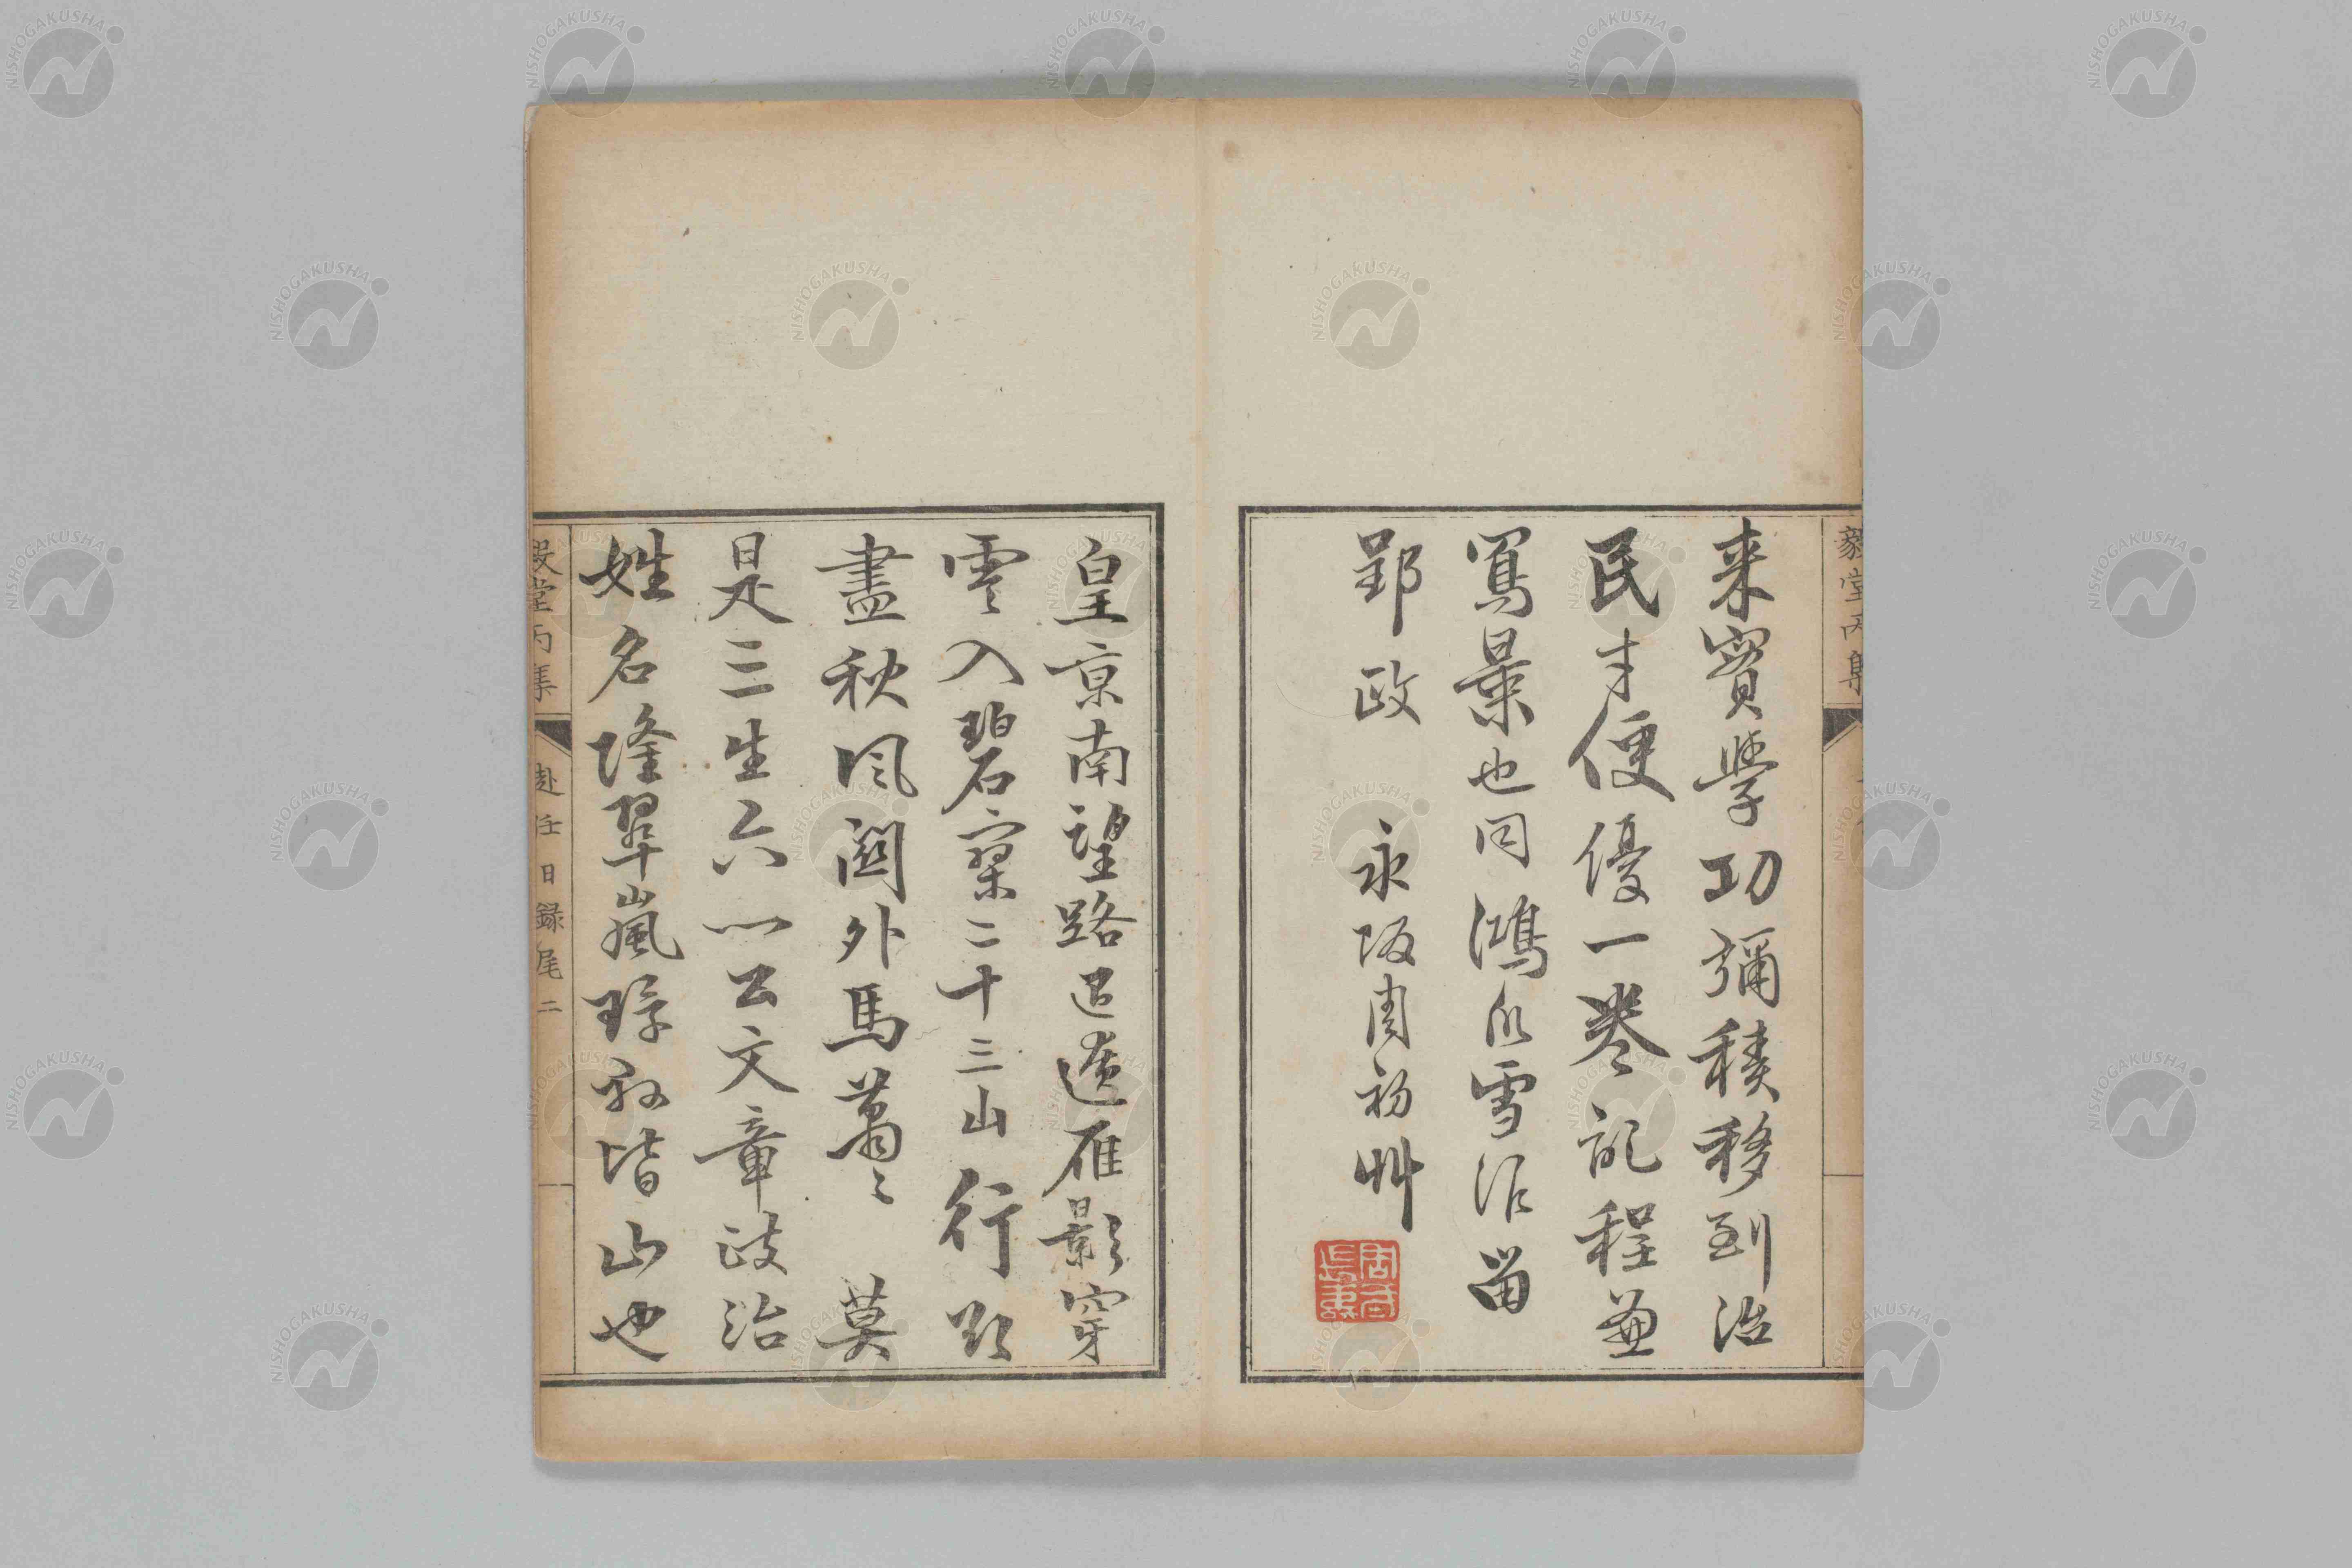 毅堂丙集
来實學功彌積移到治
民才便優一卷記程兼
寫景也同鴻爪雪泥留
郢政 永阪周初艸
皇京南望路迢遙雁影穿
雲入碧寥二十三山行
盡秋風關外馬蕭〻 莫
是三生六一公文章政治
姓名隆翠嵐環郡皆山也
毅堂丙集 赴任日録尾 二
NISHOGAKUSHA